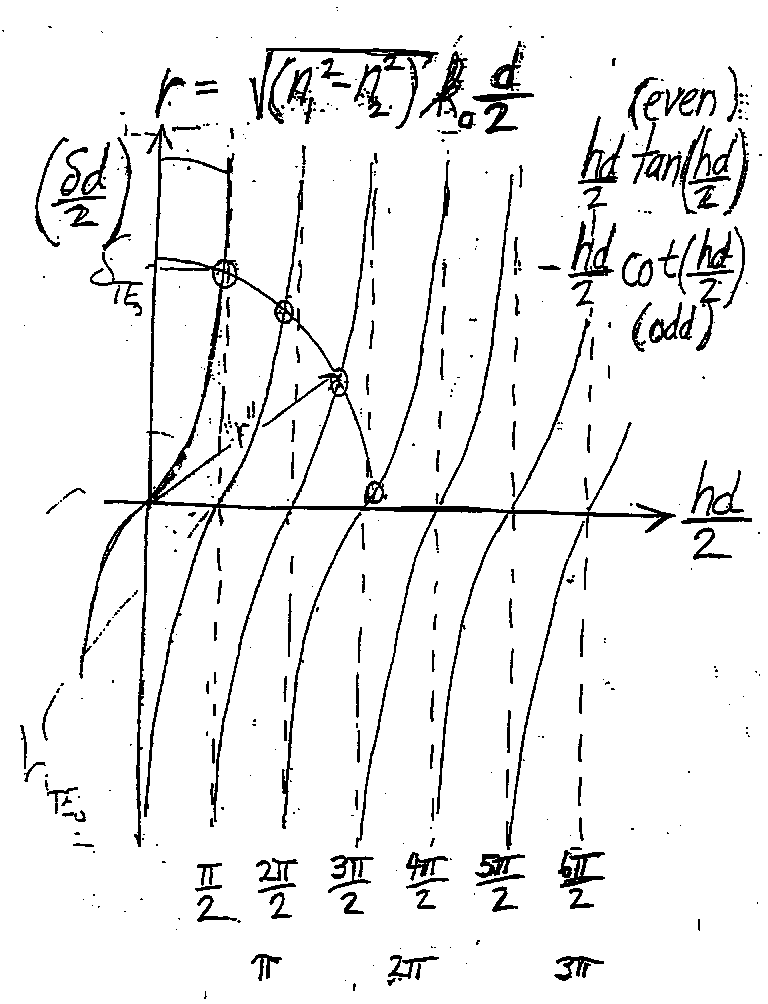 r = √(n₁² - n₂²) k₀ d/2
(even)
hd/2 tan(hd/2)
(δd/2)
- hd/2 cot(hd/2)
(odd)
δ_TE₀
"r"
hd/2
h_TE₀
π/2 2π/2 3π/2 4π/2 5π/2 6π/2
π 2π 3π